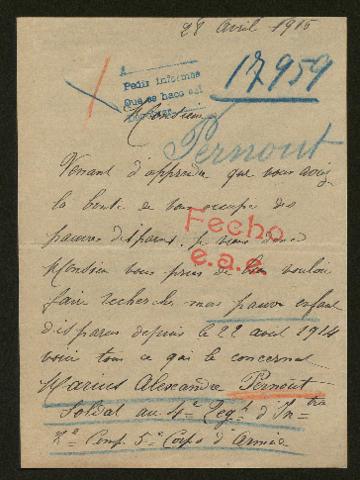 28 Avril 1915
A
Pedir informes
Que se hace así
17959
Monsieur
Pernout
Venant d'apprendre que vous aviez
la bonté de vous occupe des
pauvres disparus, je viens donc
Fecho
Monsieur vous prier de bien vouloir
e.a.e.
faire recherche mon pauvre enfant
disparus depuis le 22 aout 1914
voici tous ce qui le concernat
Marius Alexandre Pernout
Soldat au 4e Regt d'Intrie
Comp. 5e Corps d'Armée